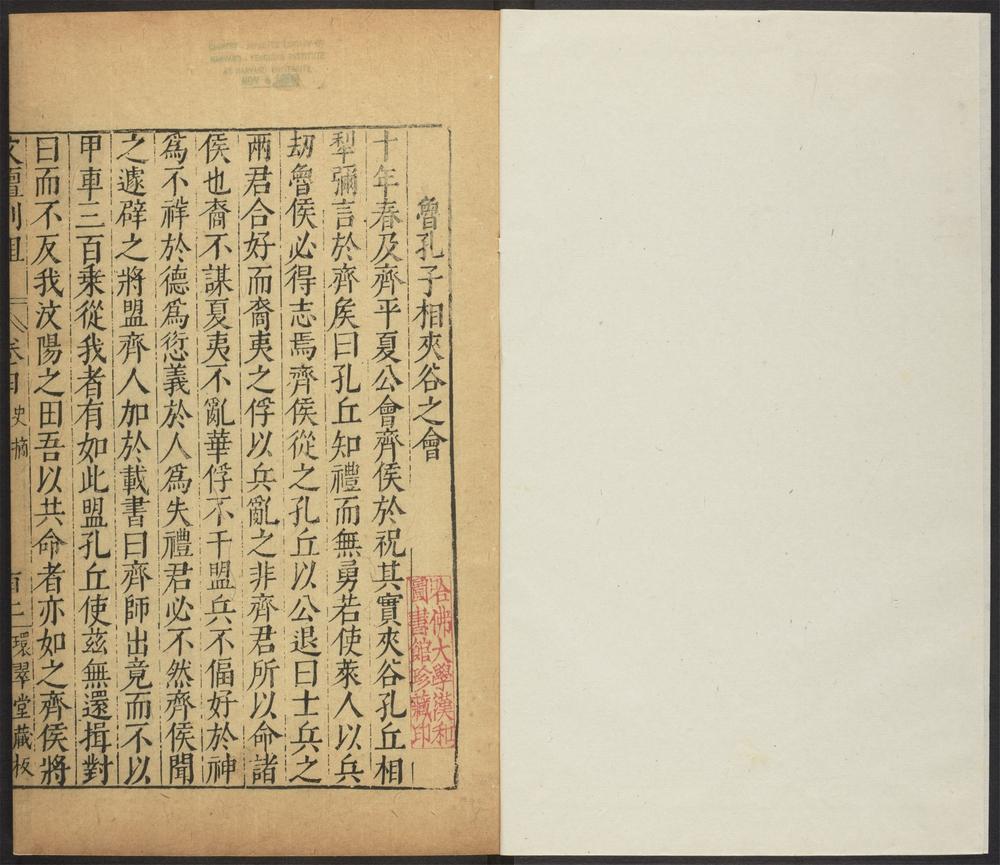 魯孔子相夾谷之會
十年春及齊平夏公會齊侯於祝其實夾谷孔丘相
犁彌言於齊矦曰孔丘知禮而無勇若使萊人以兵
劫魯侯必得志焉齊侯從之孔丘以公退曰士兵之
兩君合好而裔夷之俘以兵亂之非齊君所以命諸
侯也裔不謀夏夷不亂華俘不干盟兵不偪好於神
爲不祥於德爲愆義於人爲失禮君必不然齊侯聞
之遽辟之將盟齊人加於載書曰齊師出竟而不以
甲車三百乗從我者有如此盟孔丘使茲無還揖對
曰而不反我汶陽之田吾以共命者亦如之齊侯將
文壇列俎 卷四 史摘 百二 環翠堂藏板
哈佛大學漢和
圖書館珍藏印